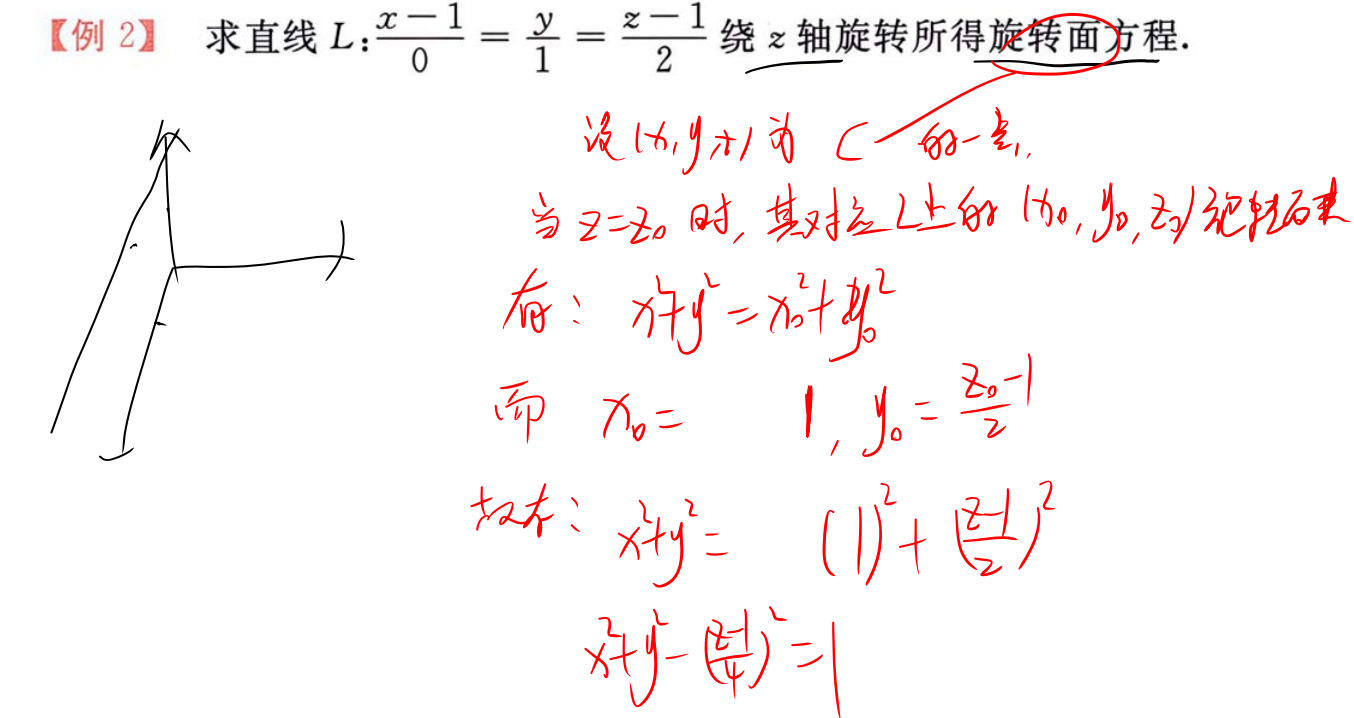 【例 2】 求直线 L:\frac{x-1}{0}=\frac{y}{1}=\frac{z-1}{2} 绕 z 轴旋转所得旋转面方程.
设 (x,y,z) 为 C 的一点,
当 z=z₀ 时, 其对应 L 上的 (x₀, y₀, z₀) 绕转而来
有: x²+y²=x₀²+y₀²
而 x₀= 1, y₀=\frac{z₀-1}{2}
故有: x²+y²= (1)²+(\frac{z-1}{2})²
x²+y²-(\frac{z-1}{4})²=1